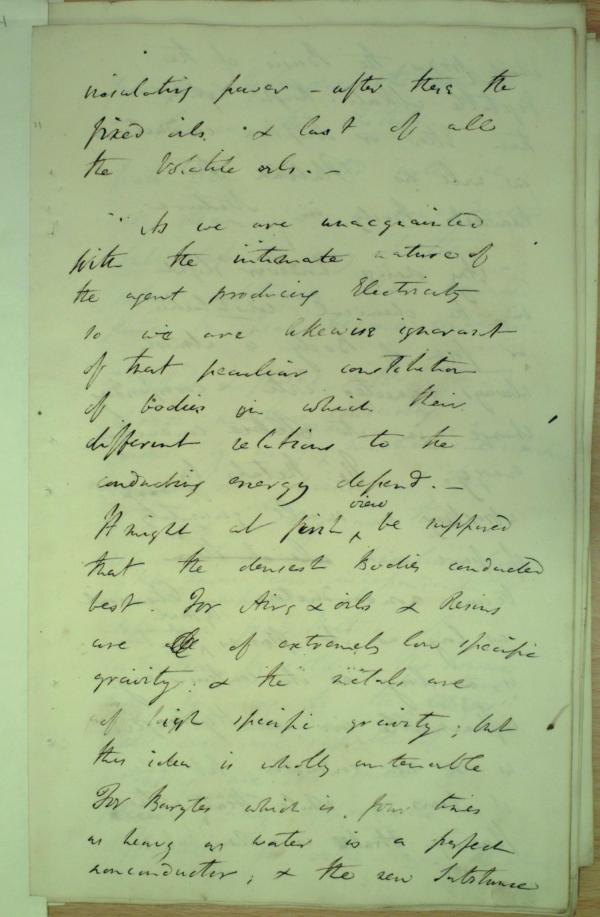 insulating power – after these the
fixed oils. & last of all
the Volatile oils. –
"As we are unacquainted
with the intimate nature of
the agent producing Electricity
so we are likewise ignorant
of that peculiar constitution
of bodies on which their
different relations to the
conducting energy depend. –
It might at first view be supposed
that the densest Bodies conducted
best. For Airs & oils & Resins
are of extremely low specific
gravity; & the metals are
of high specific gravity; but
this idea is wholly untenable
For Barytes which is four times
as heavy as water is a perfect
nonconductor; & the new Substance